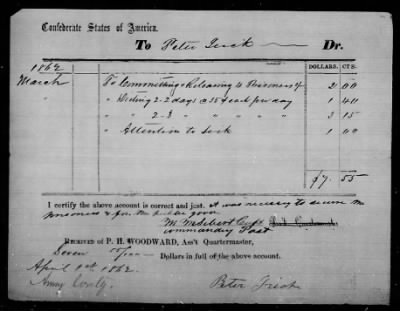 Confederate States of America.
To Peter Dr.
DOLLARS. CTS.
1862
March To Committing & Releasing 4 Prisoners 2 00
" " 2-2 days @ 35 each per day 1 40
" " 2-3 " " " " 3 15
" Attention to Sick 1 00
$7. 55
I certify the above account is correct and just. it was necessary to secure the
prisoners & for the public good
Capt
commanding Post
RECEIVED OF P. H. WOODWARD, Ass't Quartermaster,
Seven 55/100 Dollars in full of the above account.
April 1st 1862.
Peter